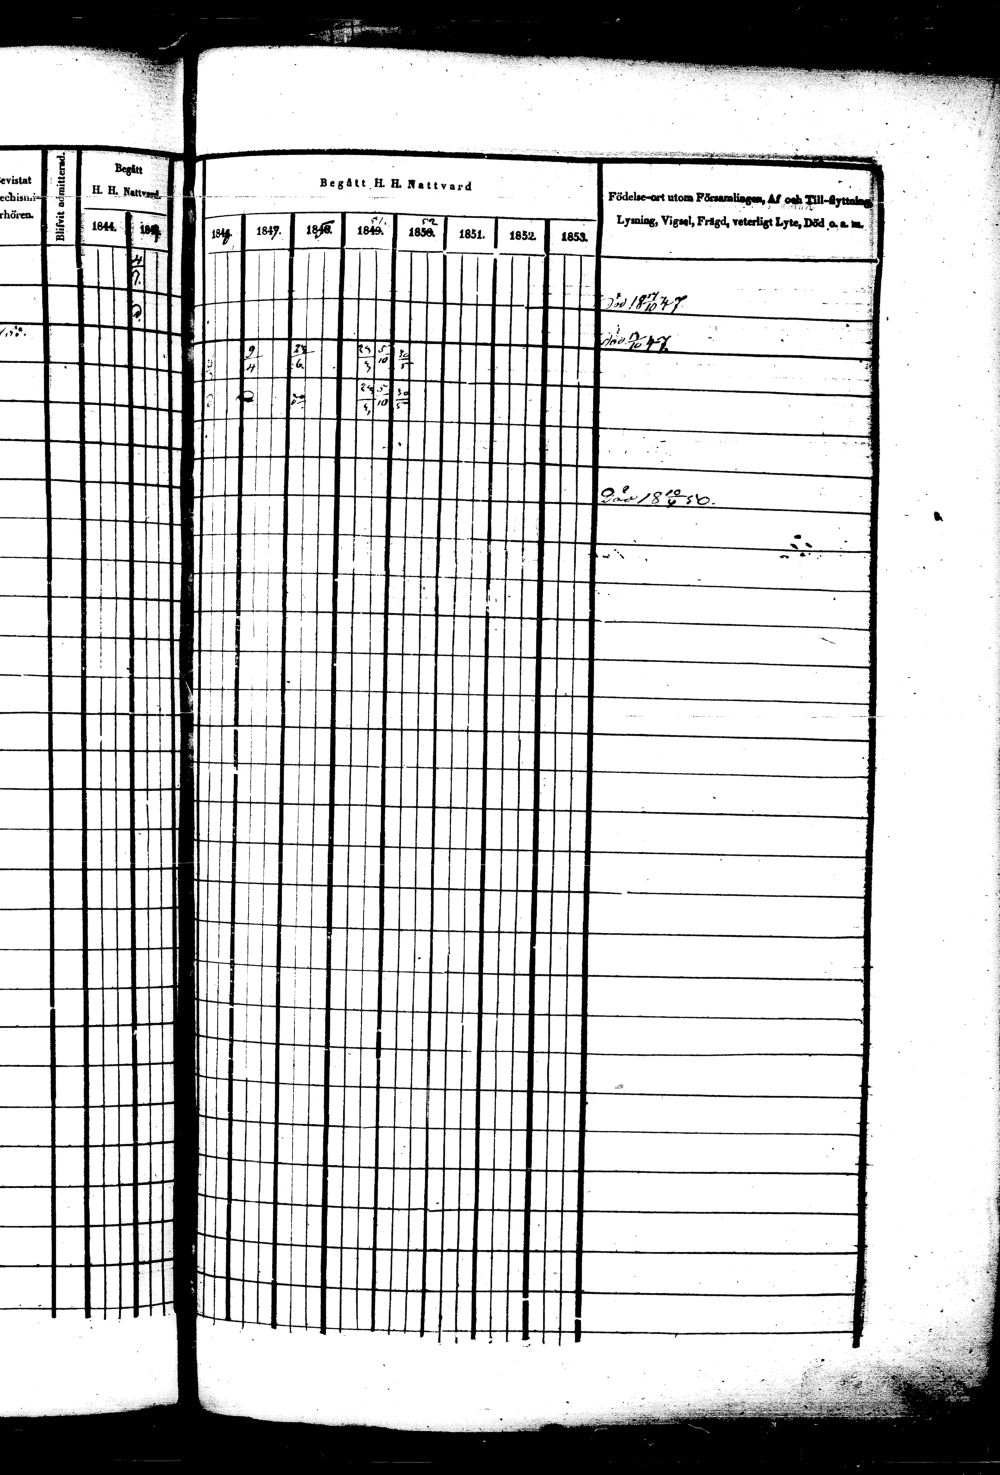 evistat
echismi-
rhören.
Blifvit admitterad.
Begått
H. H. Nattvard.
1844.
Begått H. H. Nattvard
1847.
1848.
51.
1849.
52.
1850.
1851.
1852.
1853.
Födelse-ort utom Församlingen, Af och Till-flyttning,
Lysning, Vigsel, Frägd, veterligt Lyte, Död o. a. m.
4/7.
Död 18 /10 47.
Död /10 47.
9/4
24/6
24/3 5/10 30/5
24/3 5/10 30/5
Död 18 10/4 50.